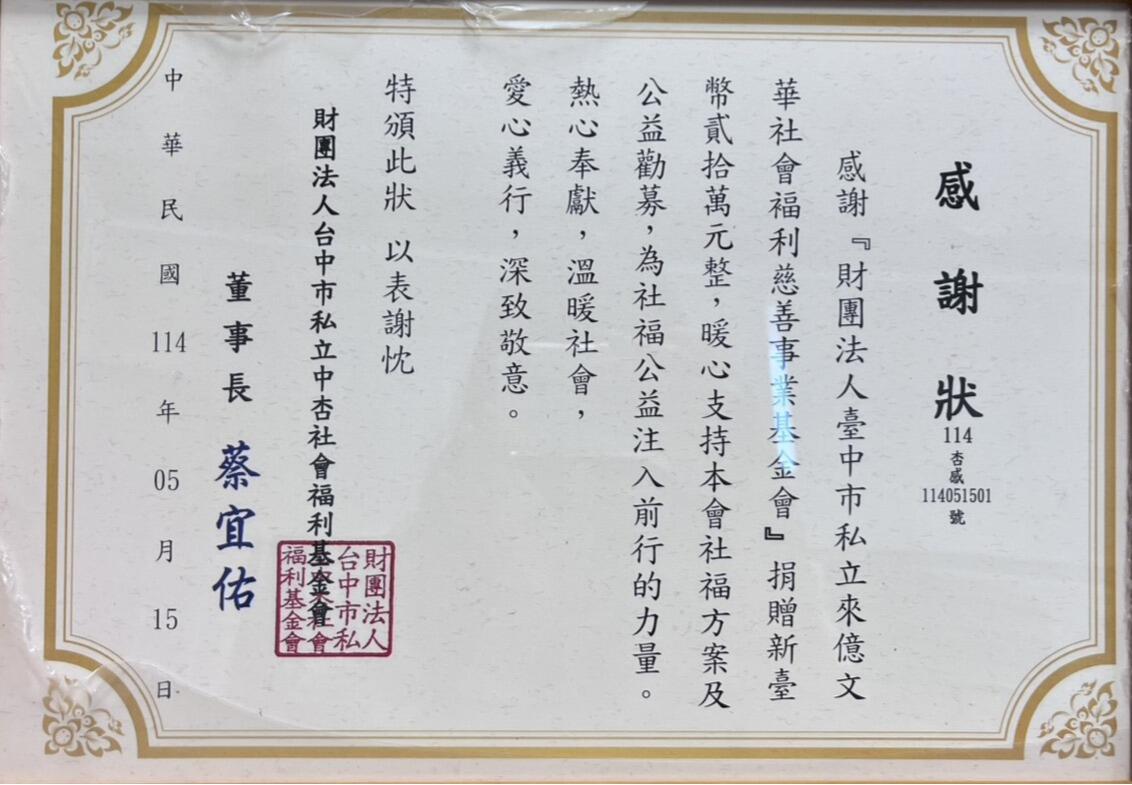 感謝狀
114杏感114051501號
感謝『財團法人臺中市私立來億文
華社會福利慈善事業基金會』捐贈新臺
幣貳拾萬元整，暖心支持本會社福方案及
公益勸募，為社福公益注入前行的力量。
熱心奉獻，溫暖社會，
愛心義行，深致敬意。
特頒此狀 以表謝忱
財團法人台中市私立中杏社會福利基金會
董事長 蔡宜佑
中華民國114年05月15日
財團法人
台中市私
福利基金會